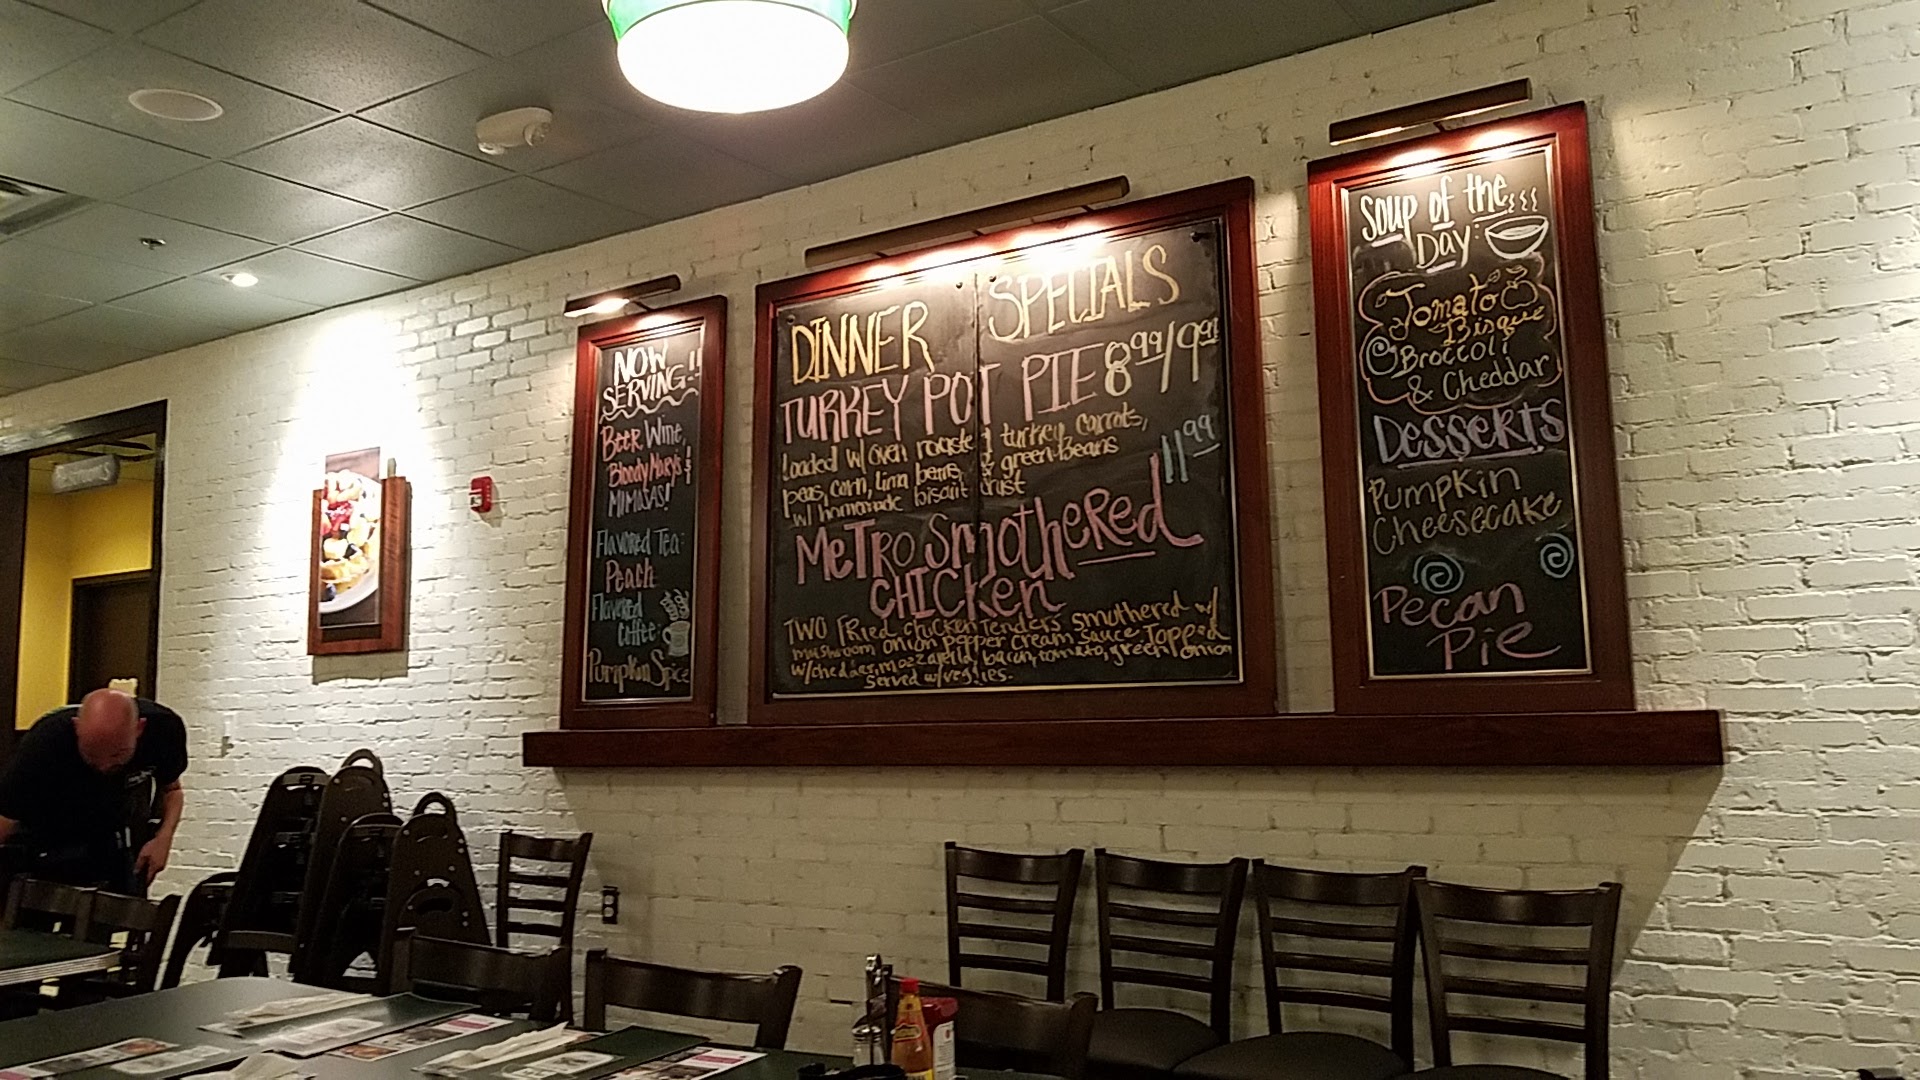 NOW
SERVING!!
Beer, Wine,
Bloody Mary's &
MIMOSAS!
Flavored Tea:
Peach
Flavored
Coffee:
Pumpkin Spice
DINNER SPECIALS
TURKEY POT PIE 8.99/9.99
Loaded w/ oven roasted turkey, carrots,
peas, corn, lima beans, & green beans
w/ homemade biscuit crust
11.99
Metro Smothered
CHICKEN
TWO Fried chicken Tenders smothered w/
mushroom onion pepper cream sauce. Topped
w/cheddar, mozzarella, bacon, tomato, green onion
Served w/veggies.
Soup of the
Day:
Tomato
Bisque
Broccoli
& Cheddar
Desserts
Pumpkin
Cheesecake
Pecan
Pie